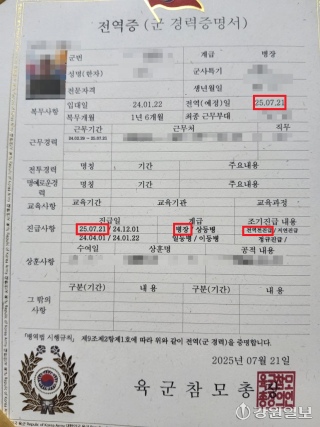 전역증 (군 경력증명서)
군번 계급 병장
성명(한자) 군사특기
전문자격 생년월일
복무사항 입대일 24.01.22 전역(예정)일 25.07.21
복무개월 1년 6개월 최종 근무부대
근무경력 근무기간 근무처 직무
전투경력 명칭 기간 주요내용
명예로운경력 명칭 기간 주요내용
교육사항 교육기간 교육기관 교육과정
진급사항 진급일 계급 조기진급 내용
25.07.21 / 24.12.01 병장 / 상등병 전역전진급 / 지연진급
24.04.01 / 24.01.22 일등병 / 이등병 정규진급 /
상훈사항 수여일 상훈명 공적 내용
그 밖의 사항 구분(기간) 내 용 구분(기간) 내 용
「병역법 시행규칙」 제9조제2항제1호에 따라 위와 같이 전역(군 경력)을 증명합니다.
2025년 07월 21일
육군참모총장
강원일보